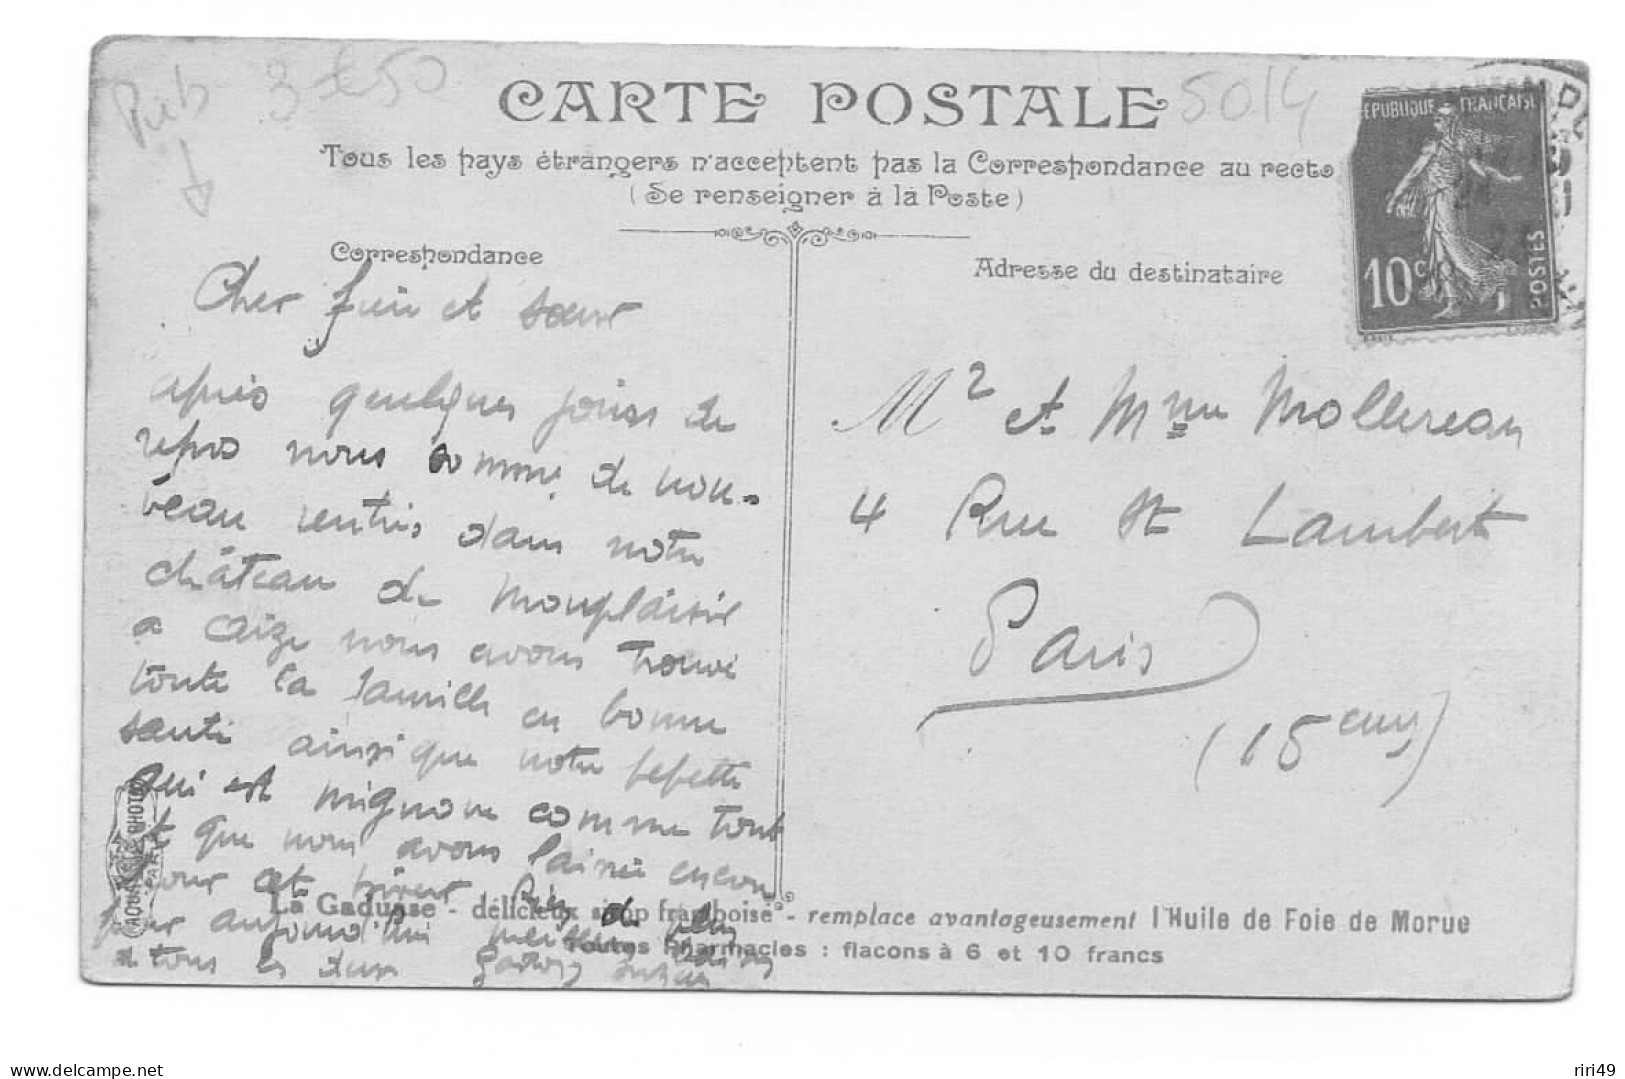 Pub 3€50
5014
CARTE POSTALE
Tous les pays étrangers n'acceptent pas la Correspondance au recto
(Se renseigner à la Poste)
Correspondance
Adresse du destinataire
EPUBLIQUE FRANÇAISE
10c
POSTES
Cher frère et sœur
après quelques jours de
repos nous somme de nou-
veau rentrés dans notre
château de monplaisir
a caize nous avons trouvé
toute la famille en bonne
santé ainsi que notre bebette
qui est mignone comme tout
et que nous avons laissé encore
pour cet hiver Rien de plus
pour aujourd'hui meilleurs baisers
a tous les deux
Mr et Mme Mollereau
4 Rue St Lambert
Paris
(15 eme)
La Gaduase - délicieux sirop framboisé - remplace avantageusement l'Huile de Foie de Morue
Toutes Pharmacies : flacons à 6 et 10 francs
riri49